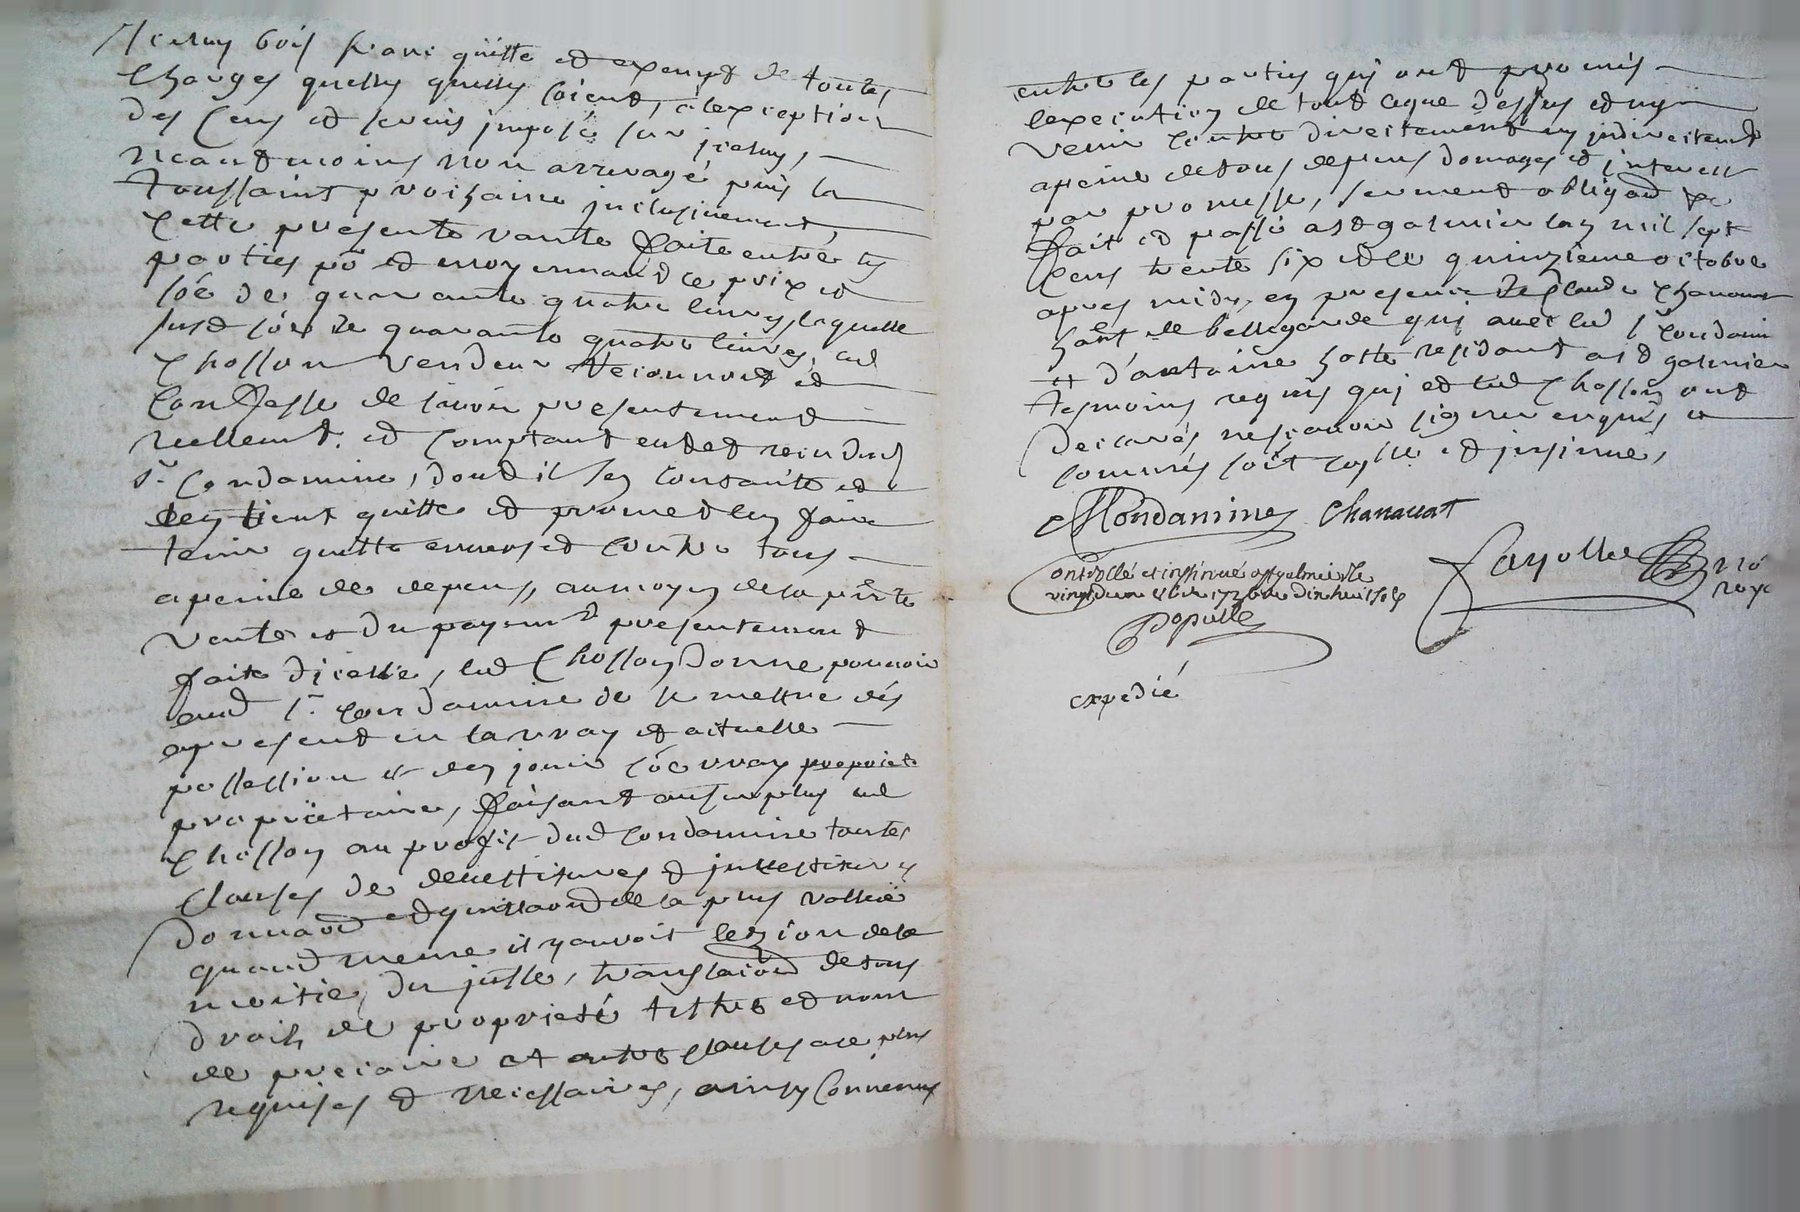 Iceluy bois franc quitte et exempt de toutes
Charges quelles quelles soient, a lexception
des Cens et servis imposé sur iceluy,
neantmoins non arreragé puis la
toussaint prochaine inclusivement,
Cette presente vante faite entre les
parties po et moyennand ce prix et
soe de quarante quatre livres, laquelle
susd soe de quarante quatre livres, led
Chollon vendeur Reconnoit et
Confesse de savoir presentement
reellemt. et Comptant eu et receu dud
Sr. Condamine, dont il sen Contante et
len tient quitte et promet len faire
tenir quitte envers et Contre tous
a peine de depens, au moyen de la pnte
vente et du payemt presentement
faite dicelle, led Chollon donne pouvoir
aud Sr. Condamine de se mettre dés
apresent en la vray et actuelle
possession et den jouir coe vray propriete
proprietaire, faisant au surplus led
Chollon au profit dud Condamine toutes
Clauses de devestitures et investitures
donnaõn et quittaõn de la plus vallue
quand meme il y auroit lezion dela
moitie du juste, translaõn de tous
droits de propriesté tiltres et nom
de precaire et autres clauses a ce plus
requises et necessaires, ainsy Convenus
entre les parties qui ont promis
lexecution de tout ceque dessus et ny
venir Contre directement ny indirectemt
a peine de tous depens domages et interest
par promesse, serment obligaõn &c
fait et passé a St galmier lan mil sept
Cens trente six et le quinzieme octobre
apres midy, en presence de Claude Chanavat
hant de bellegarde qui avec led Sr Condamin
et d'antoine hatte residant a St galmier
tesmoins requis qui et led Chollon ont
declarés nesçavoir signer enquis et
sommés soit collé et insinué,
Condamine Chanavat
Contrllé et insinué a St galmier le
vingt deux 8bre 1736 Reçu dix huit sols
Populle
Fayolle nre
royal
expedié